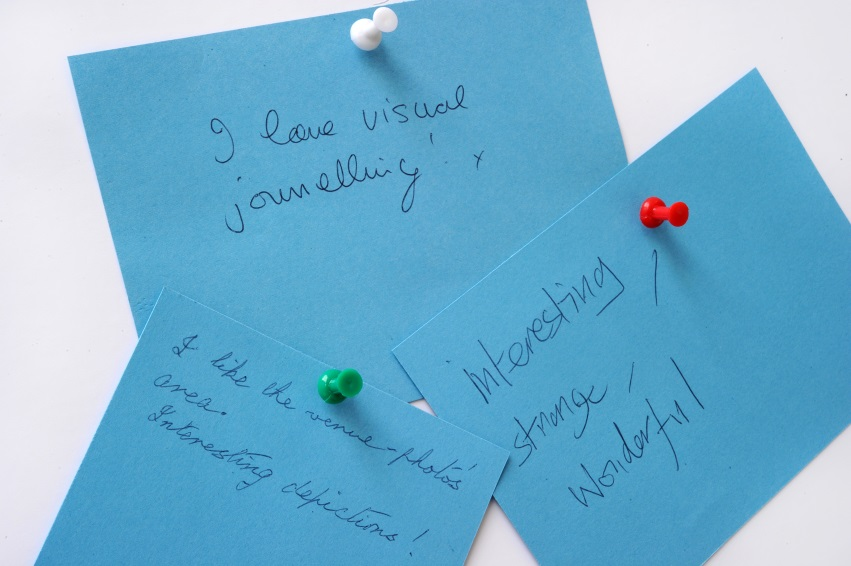 I love visual
journelling! x
I like the venue-photo's
area.
Interesting depictions!
interesting,
strange,
wonderful